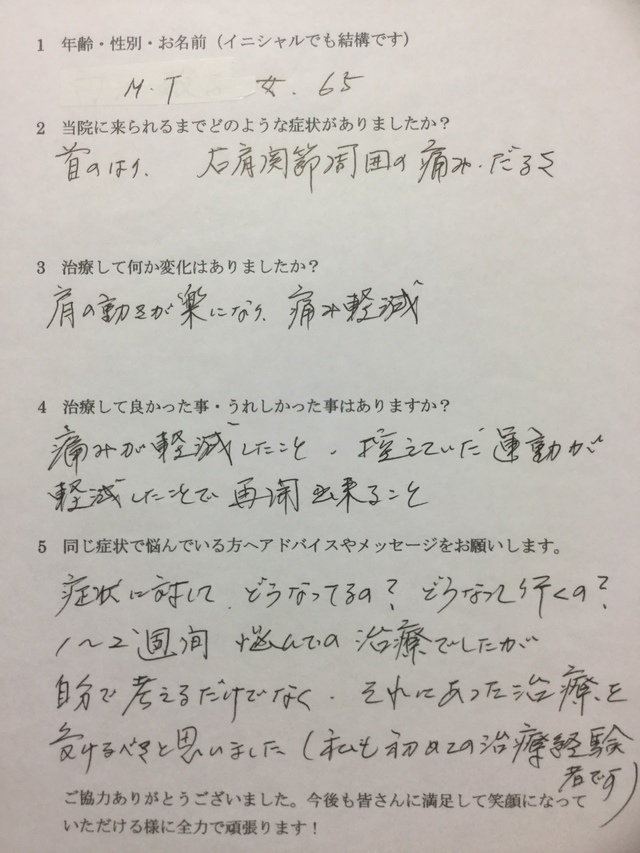 1 年齢・性別・お名前（イニシャルでも結構です）
M.T 女.65
2 当院に来られるまでどのような症状がありましたか？
首のはり、 右肩関節周囲の痛み・だるさ
3 治療して何か変化はありましたか？
肩の動きが楽になり、痛み軽減
4 治療して良かった事・うれしかった事はありますか？
痛みが軽減したこと、控えていた運動が
軽減したことで再開出来ること
5 同じ症状で悩んでいる方へアドバイスやメッセージをお願いします。
症状に対して、どうなってるの？どうなって行くの？
1〜2週間 悩んでの治療でしたが
自分で考えるだけでなく、それにあった治療を
受けるべきと思いました（私も初めての治療経験
者です）
ご協力ありがとうございました。今後も皆さんに満足して笑顔になって
いただける様に全力で頑張ります！